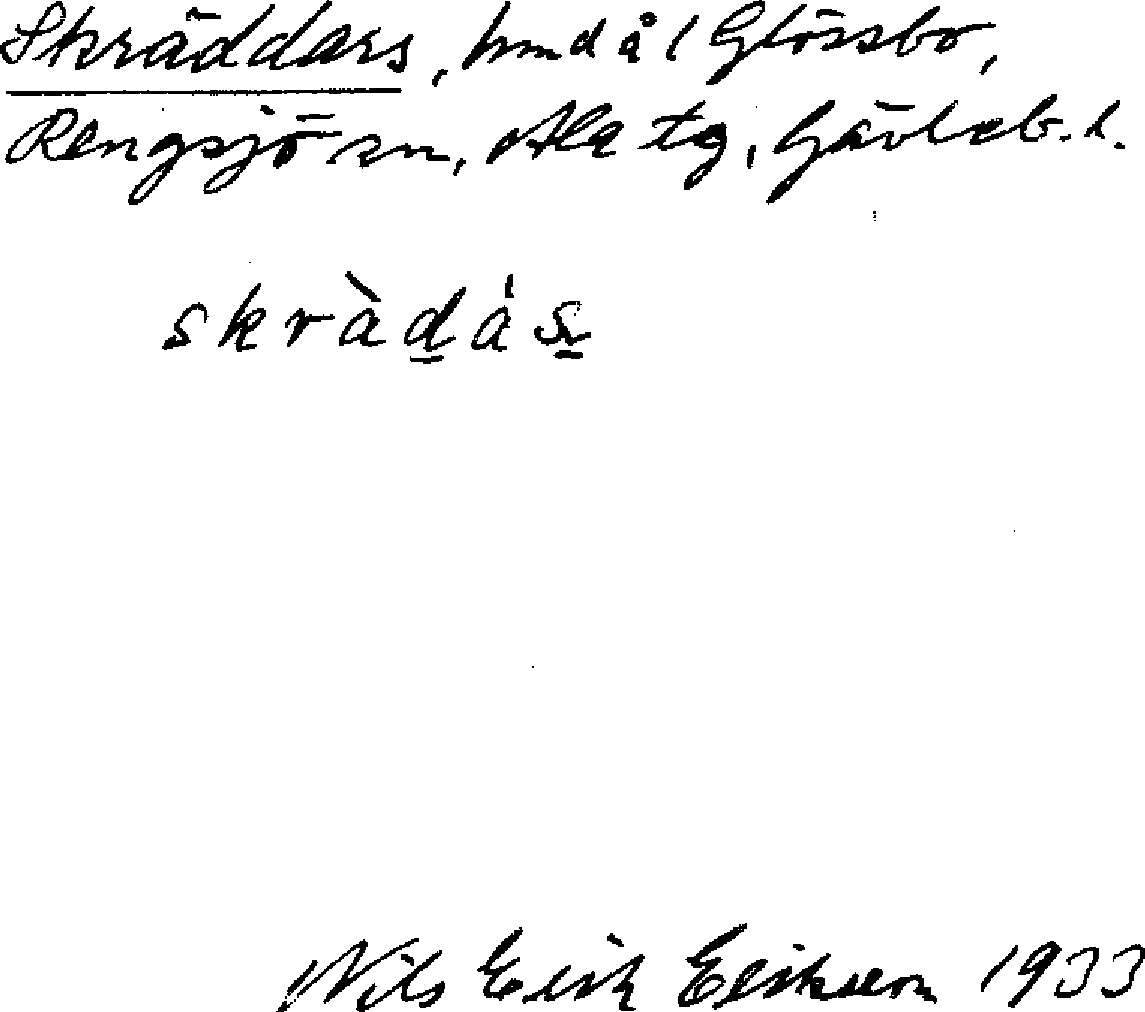 Skrädders, hmd å i Glössbo,
Rengsjö sn, Ala tg, Gävleb. l.
skràdás
Nils Erik Erikson 1933